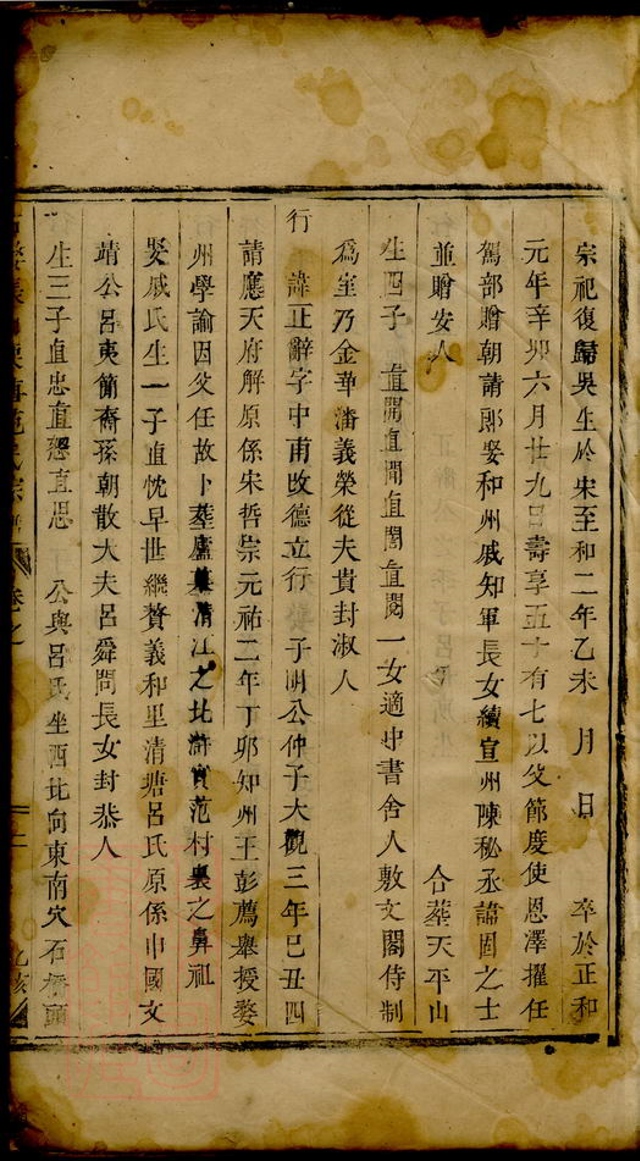 宗祀復歸吳生於宋至和二年乙未 月 日 卒於正和
元年辛卯六月廿九日壽享五十有七以父節度使恩澤擢任
駕部贈朝請郎娶和州戚知軍長女續宣州陳秘丞諱固之士
並贈安人 合葬天平山
生四子 直開直閒直誾直閱一女適中書舍人敷文閣侍制
為室乃金華潘義榮從夫貴封淑人
行 諱正辭字中甫改德立行 子明公仲子大觀三年己丑四
請應天府解原係宋哲宗元祐二年丁卯知州王彭薦舉授婺
州學諭因父任故卜葬廬墓清江之北滸實范村裏之鼻祖
娶戚氏生一子直忱早世繼贅義和里清塘呂氏原係中國文
靖公呂夷簡裔孫朝散大夫呂舜問長女封恭人
生三子直忠直恕直思 公與呂氏坐西北向東南穴石橋頭
范氏宗譜 卷之 乙亥